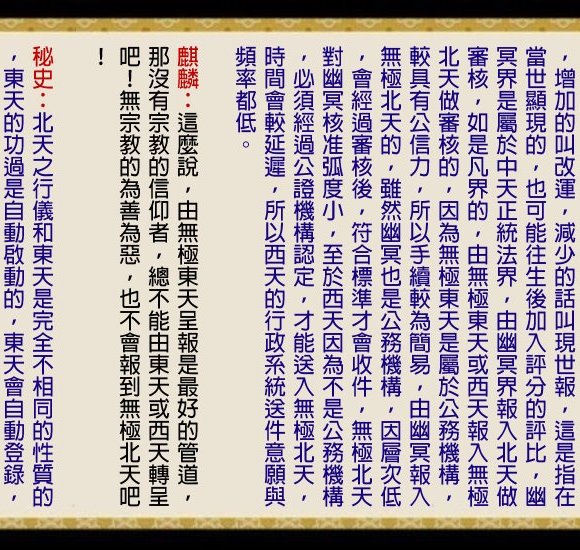 ，增加的叫改運，減少的話叫現世報，這是指在
當世顯現的，也可能往生後加入評分的評比，幽
冥界是屬於中天正統法界，由幽冥界報入北天做
審核，如是凡界的，由無極東天或西天報入無極
北天做審核的，因為無極東天是屬於公務機構，
較具有公信力，所以手續較為簡易，由幽冥報入
無極北天的，雖然幽冥也是公務機構，因層次低
，會經過審核後，符合標準才會收件，無極北天
對幽冥核准弧度小，至於西天因為不是公務機構
，必須經過公證機構認定，才能送入無極北天，
時間會較延遲，所以西天的行政系統送件意願與
頻率都低。
麒麟：這麼說，由無極東天呈報是最好的管道，
那沒有宗教的信仰者，總不能由東天或西天轉呈
吧！無宗教的為善為惡，也不會報到無極北天吧
！
秘史：北天之行儀和東天是完全不相同的性質的
，東天的功過是自動啟動的，東天會自動登錄，